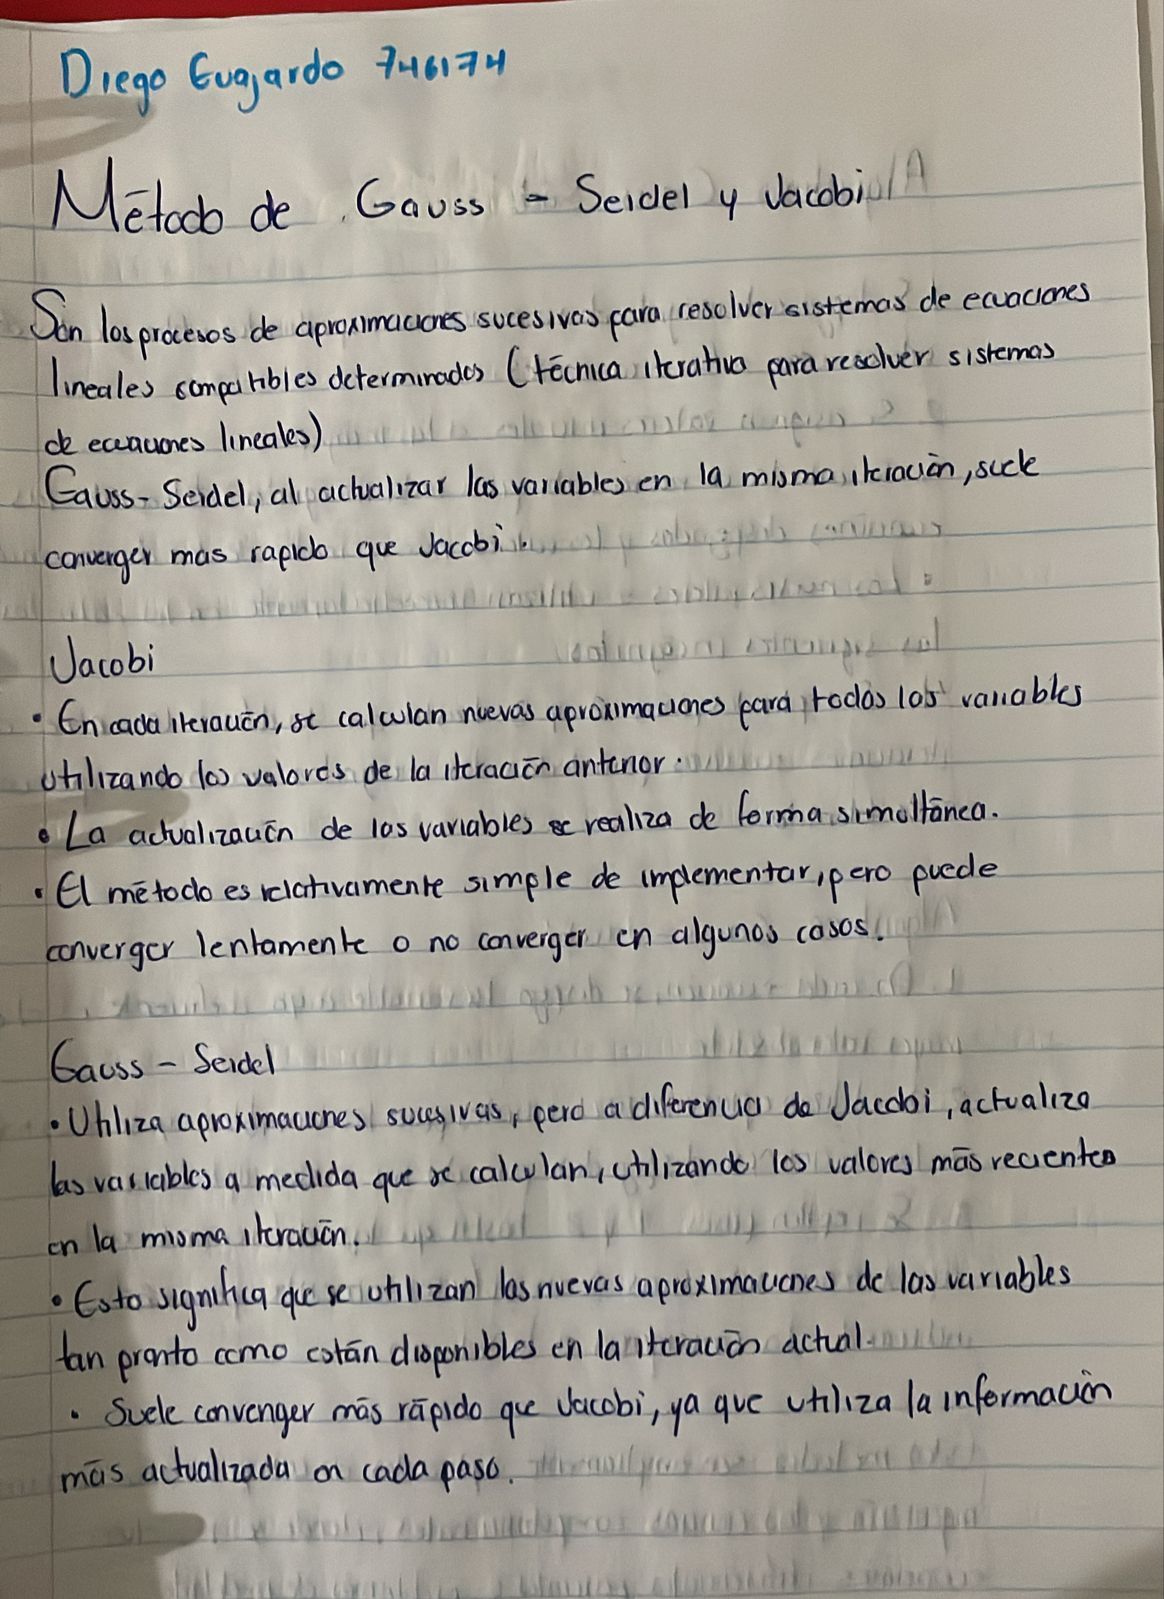 Diego Guajardo 746174
Método de Gauss - Seidel y Jacobi
Son los procesos de aproximaciones sucesivas para resolver sistemas de ecuaciones
lineales compatibles determinados (técnica iterativa para resolver sistemas
de ecuaciones lineales)
Gauss-Seidel, al actualizar las variables en la misma iteración, suele
converger mas rapido que Jacobi.
Jacobi
• En cada iteración, se calculan nuevas aproximaciones para todas las variables
utilizando los valores de la iteración anterior.
• La actualización de las variables se realiza de forma simultánea.
• El método es relativamente simple de implementar, pero puede
converger lentamente o no converger en algunos casos.
Gauss - Seidel
• Utiliza aproximaciones sucesivas, pero a diferencia de Jacobi, actualiza
las variables a medida que se calculan, utilizando los valores más recientes
en la misma iteración.
• Esto significa que se utilizan las nuevas aproximaciones de las variables
tan pronto como están disponibles en la iteración actual.
• Suele convenger más rápido que Jacobi, ya que utiliza la información
más actualizada en cada paso.